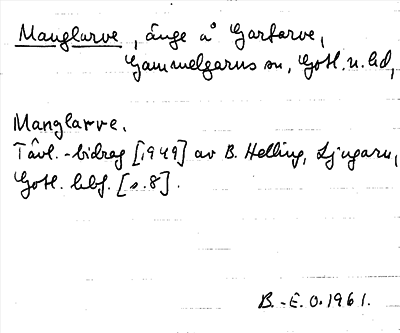 Manglarve, änge å Garfarve,
Gammelgarns sn, Gotl. n. hd,
Manglarve.
Tävl.-bidrag [1949] av B. Helling, Ljugarn,
Gotl. hbf. [s. 8].
B.-E. O. 1961.